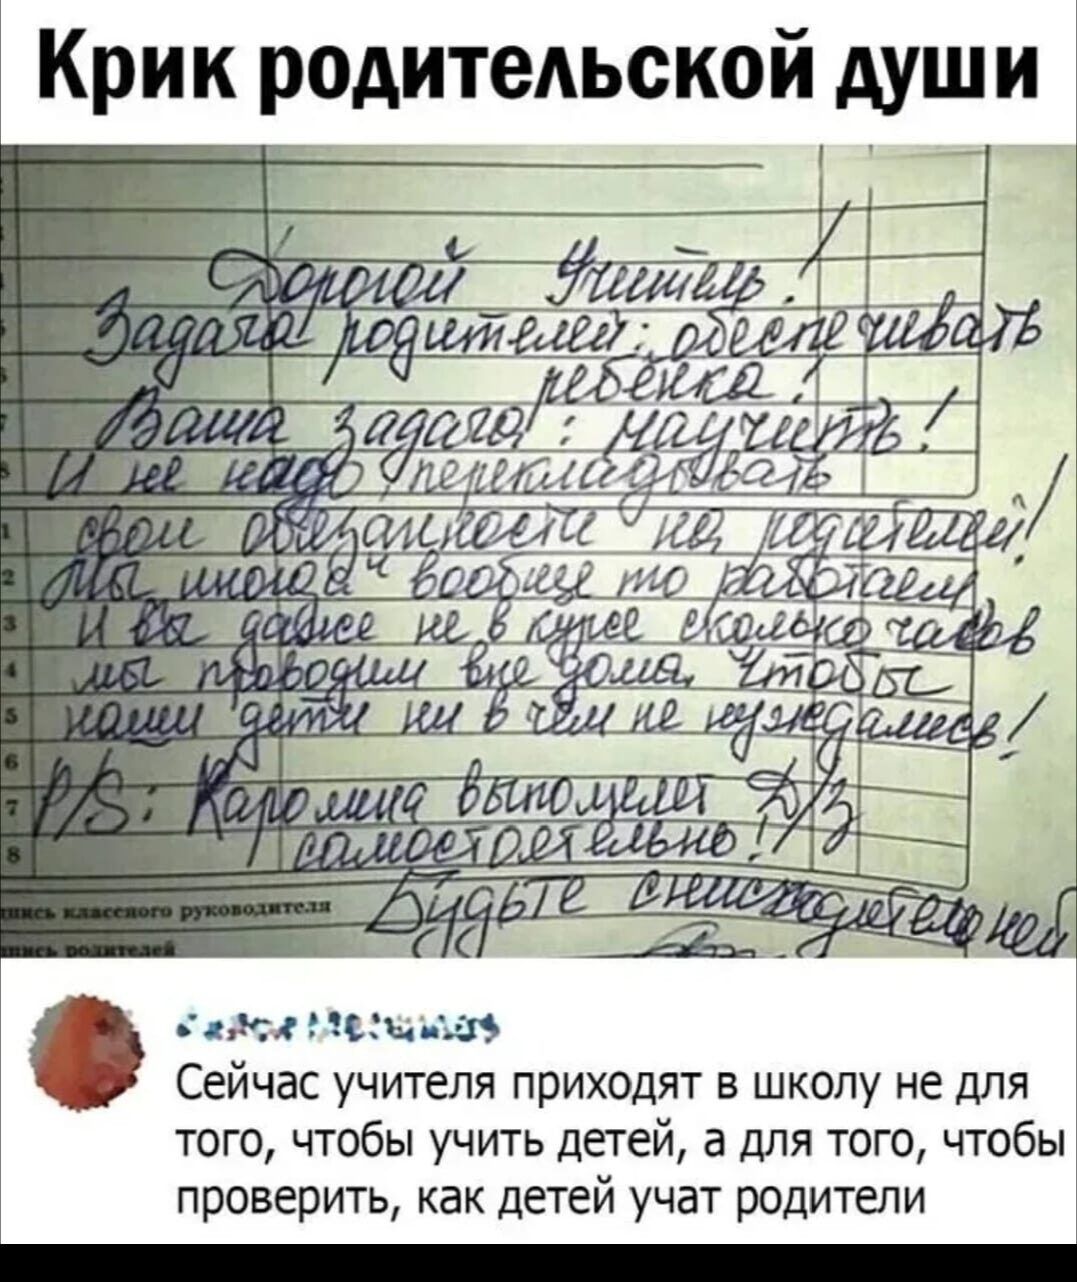 Крик родительской души
Дорогой Учитель!
Задача родителей: обеспечивать
ребёнка!
Ваша задача: научить!
И не надо перекладовать
свои обязанности на родителей!
Мы иногда вообще то работаем,
И вы даже не в курсе сколько часов
мы проводим вне дома, Чтобы
наши дети ни в чём не нуждались!
P/S: Каролина выполняет Д/З
самостоятельно!
Будьте снисходительней
пись классного руководителя
пись родителей
1
2
3
4
5
6
7
8
Сейчас учителя приходят в школу не для
того, чтобы учить детей, а для того, чтобы
проверить, как детей учат родители